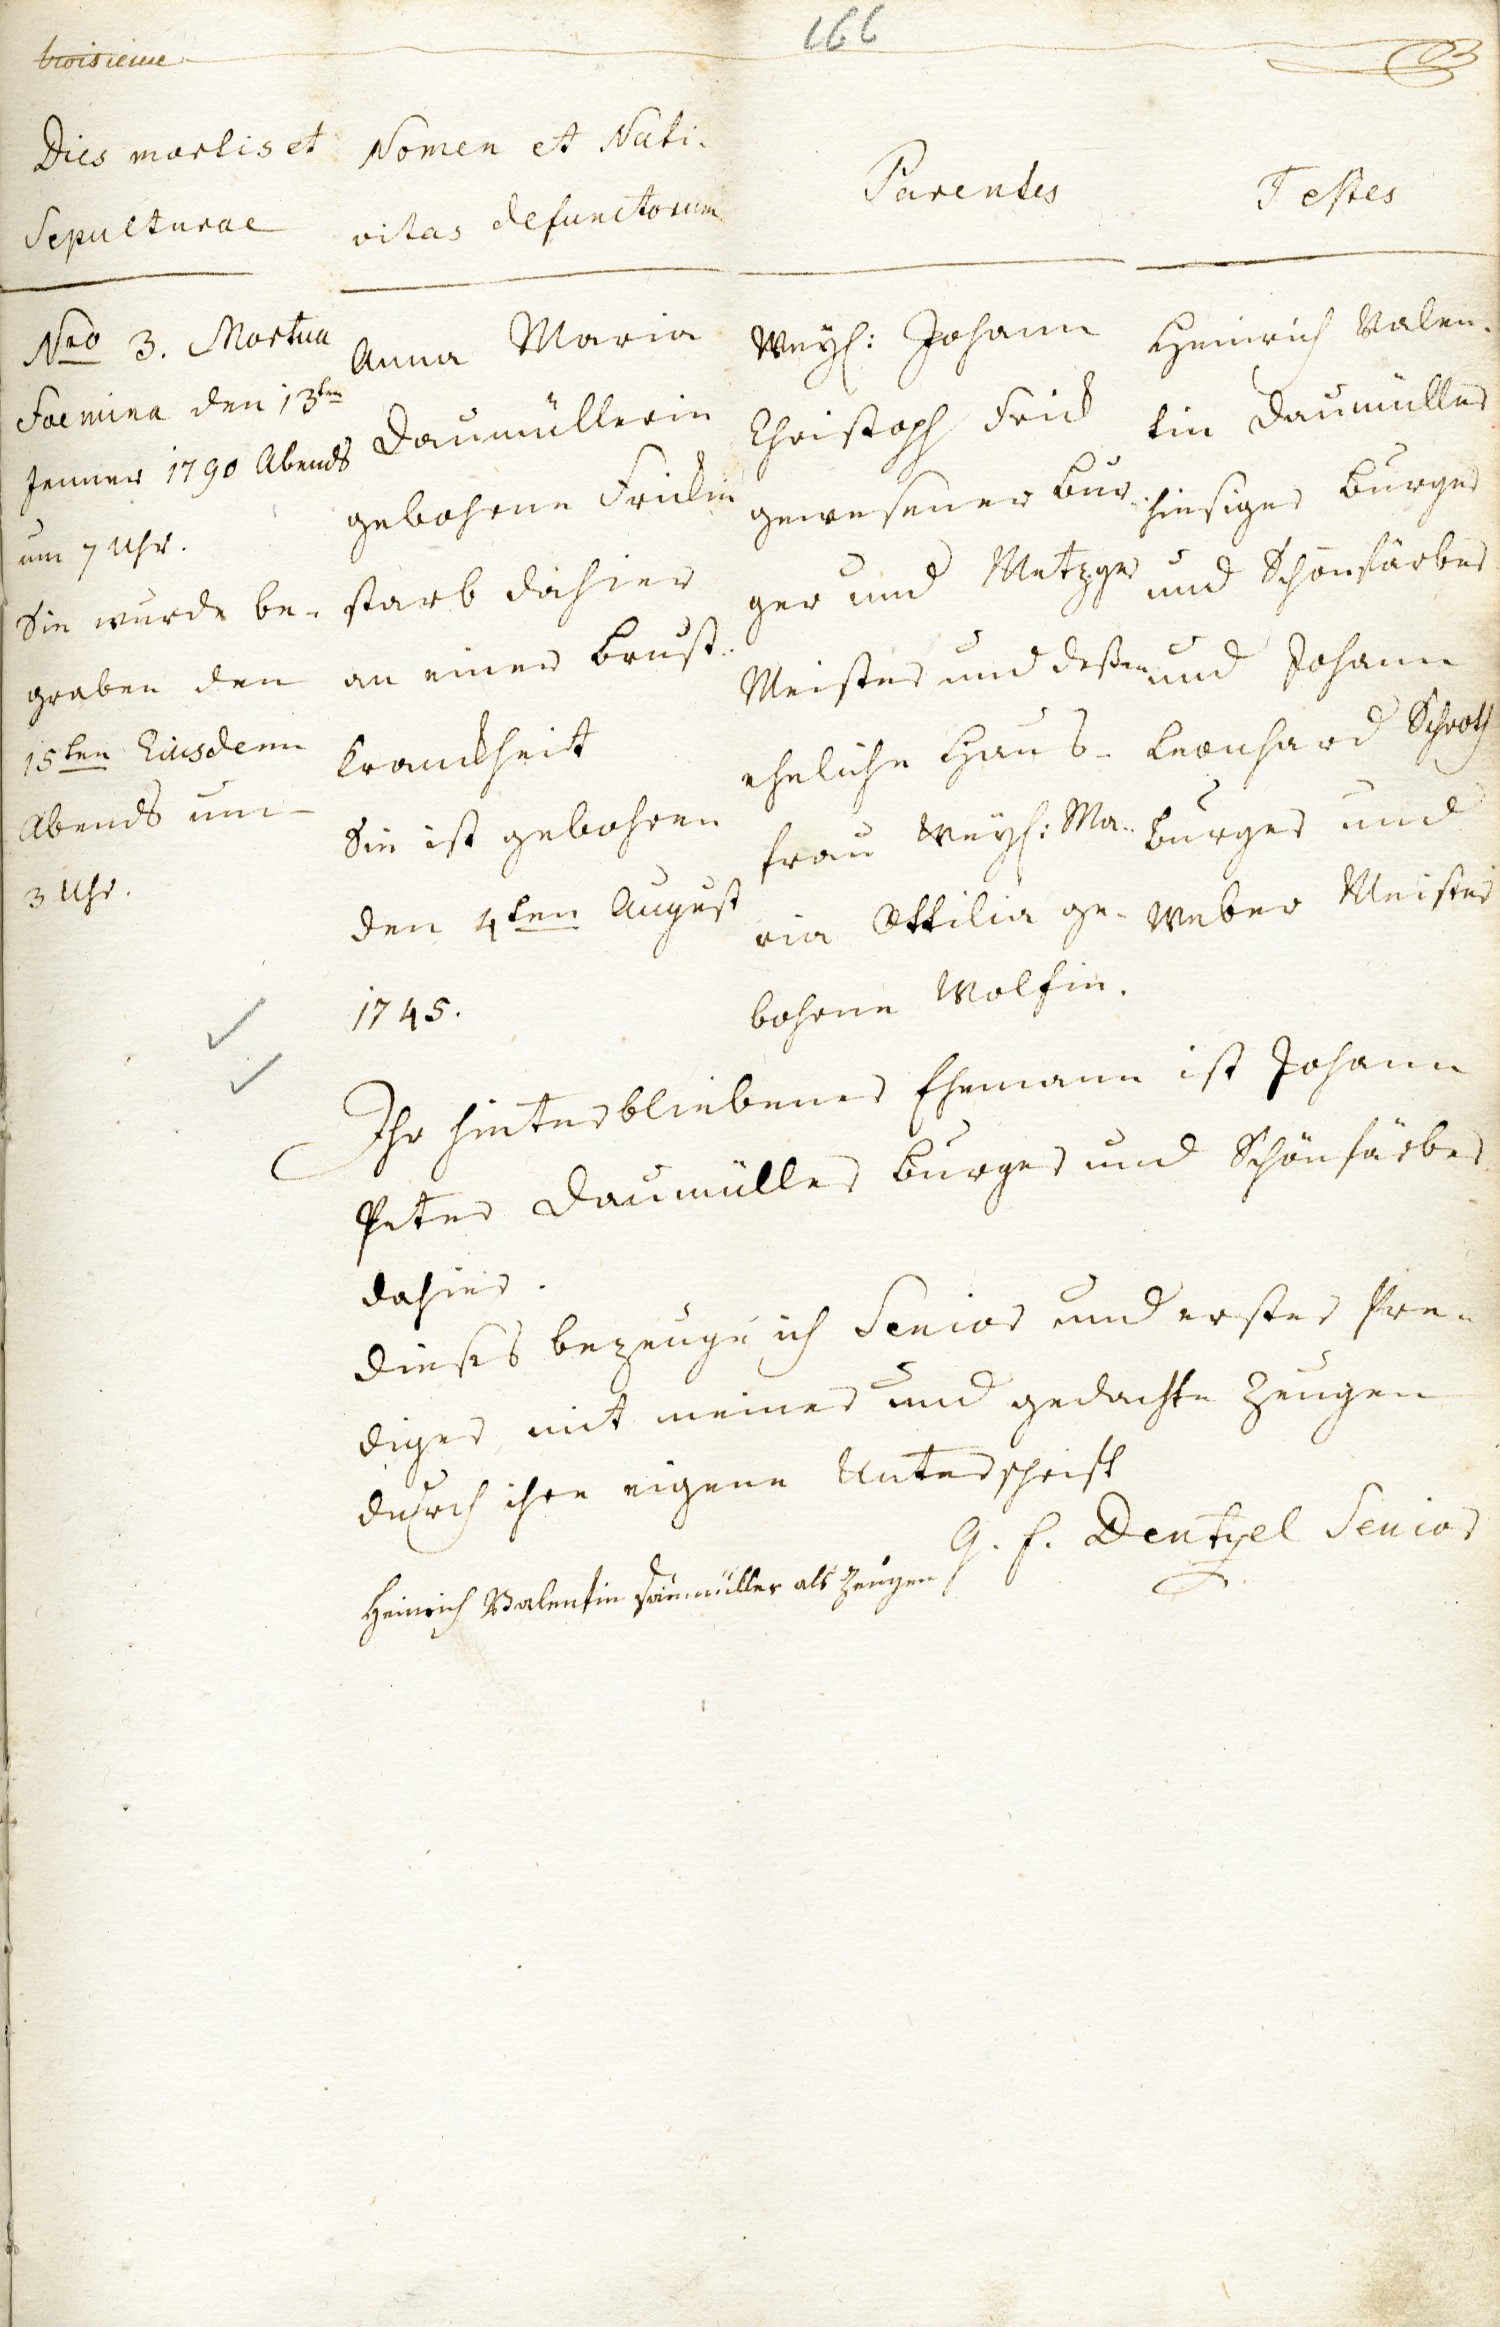 166
troisieme
Dies mortis et
Sepulturae
Nomen et Nati-
vitas defunctorum
Parentes
Testes
Nro 3. Mortua
Foemina den 13ten
Jenner 1790 Abends
um 7 Uhr.
Sie wurde be-
graben den
15ten Eiusdem
Abends um
3 Uhr.
Anna Maria
Daumüllerin
gebohrne Frickin
starb dahier
an einer Brust-
Kranckheit
Sie ist gebohren
den 4ten August
1745.
Weyl: Johann
Christoph Frick
gewesener Bur-
ger und Metzger
Meister und deßen
eheliche Haus-
frau Weyl: Ma-
ria Ottilia ge-
bohrne Wolfin.
Heinrich Valen-
tin Daumüller
hiesiger Burger
und Schönfärber
und Johann
Leonhard Schroth
Burger und
Weber Meister
Ihr hinterbliebener Ehemann ist Johann
Peter Daumüller Burger und Schönfärber
dahier.
Dieses bezeuge ich Senior und erster Pre-
diger mit meiner und gedachte Zeugen
durch ihre eigene Unterschrift
G. F. Dentzel Senior
Heinrich Valentin Daumüller als Zeugen